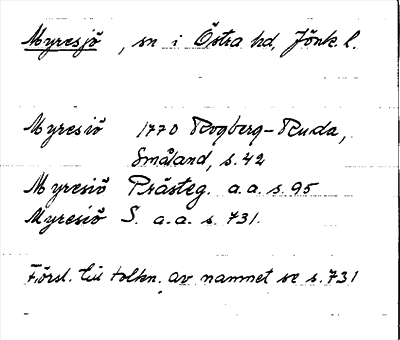 Myresjö , sn i Östra hd, Jönk. l.
Myresiö 1770 Rogberg-Ruda,
Småland, s. 42
Myresiö Prästeg. a.a. s. 95
Myresiö S. a.a. s. 731.
Försl. till tolkn. av namnet se s. 731